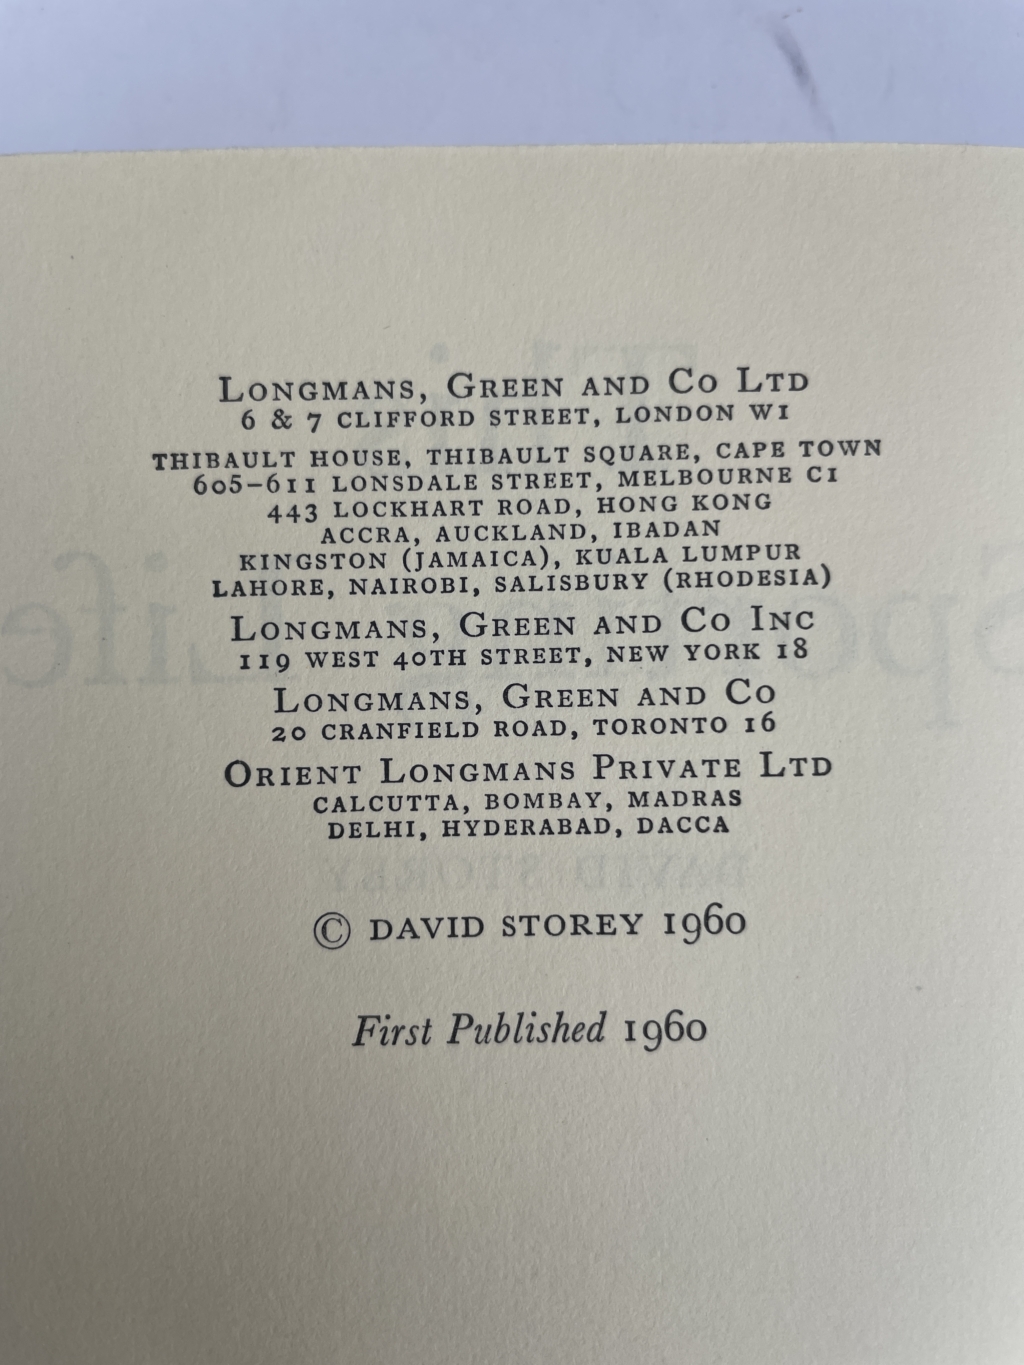 LONGMANS, GREEN AND CO LTD
6 & 7 CLIFFORD STREET, LONDON W1
THIBAULT HOUSE, THIBAULT SQUARE, CAPE TOWN
605–611 LONSDALE STREET, MELBOURNE C1
443 LOCKHART ROAD, HONG KONG
ACCRA, AUCKLAND, IBADAN
KINGSTON (JAMAICA), KUALA LUMPUR
LAHORE, NAIROBI, SALISBURY (RHODESIA)
LONGMANS, GREEN AND CO INC
119 WEST 40TH STREET, NEW YORK 18
LONGMANS, GREEN AND CO
20 CRANFIELD ROAD, TORONTO 16
ORIENT LONGMANS PRIVATE LTD
CALCUTTA, BOMBAY, MADRAS
DELHI, HYDERABAD, DACCA
DAVID STOREY
© DAVID STOREY 1960
First Published 1960